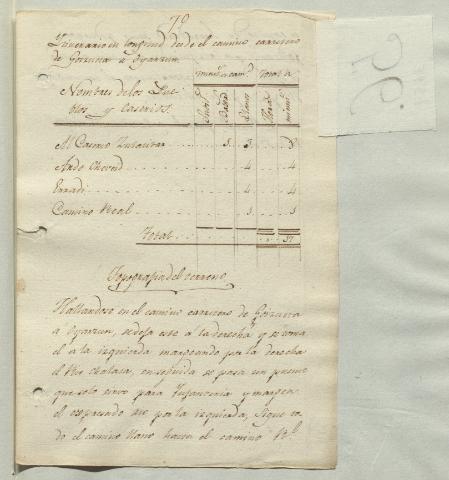 7º
Itinerario en longitud desde el camino carretero
de Gorzuna a Oyarzun
Nombres de los Pue-
blos y Caseríos
Subd.
Bajad
Llano
Hora
minut
Al Caserio 3 5 8
4 4
4 4
Camino Real 1 1
Total 17
Topografia del terreno
Hallandose en el camino carretero de Gorzuna
a Oyarzun, se deja este a la derecha, y se toma
el a la izquierda margeando por la derecha
el Rio en subida se pasa un puente
que solo sirve para Infanteria y margea
el expresado rio por la izquierda, sigue to-
do el camino llano hasta el camino Rl